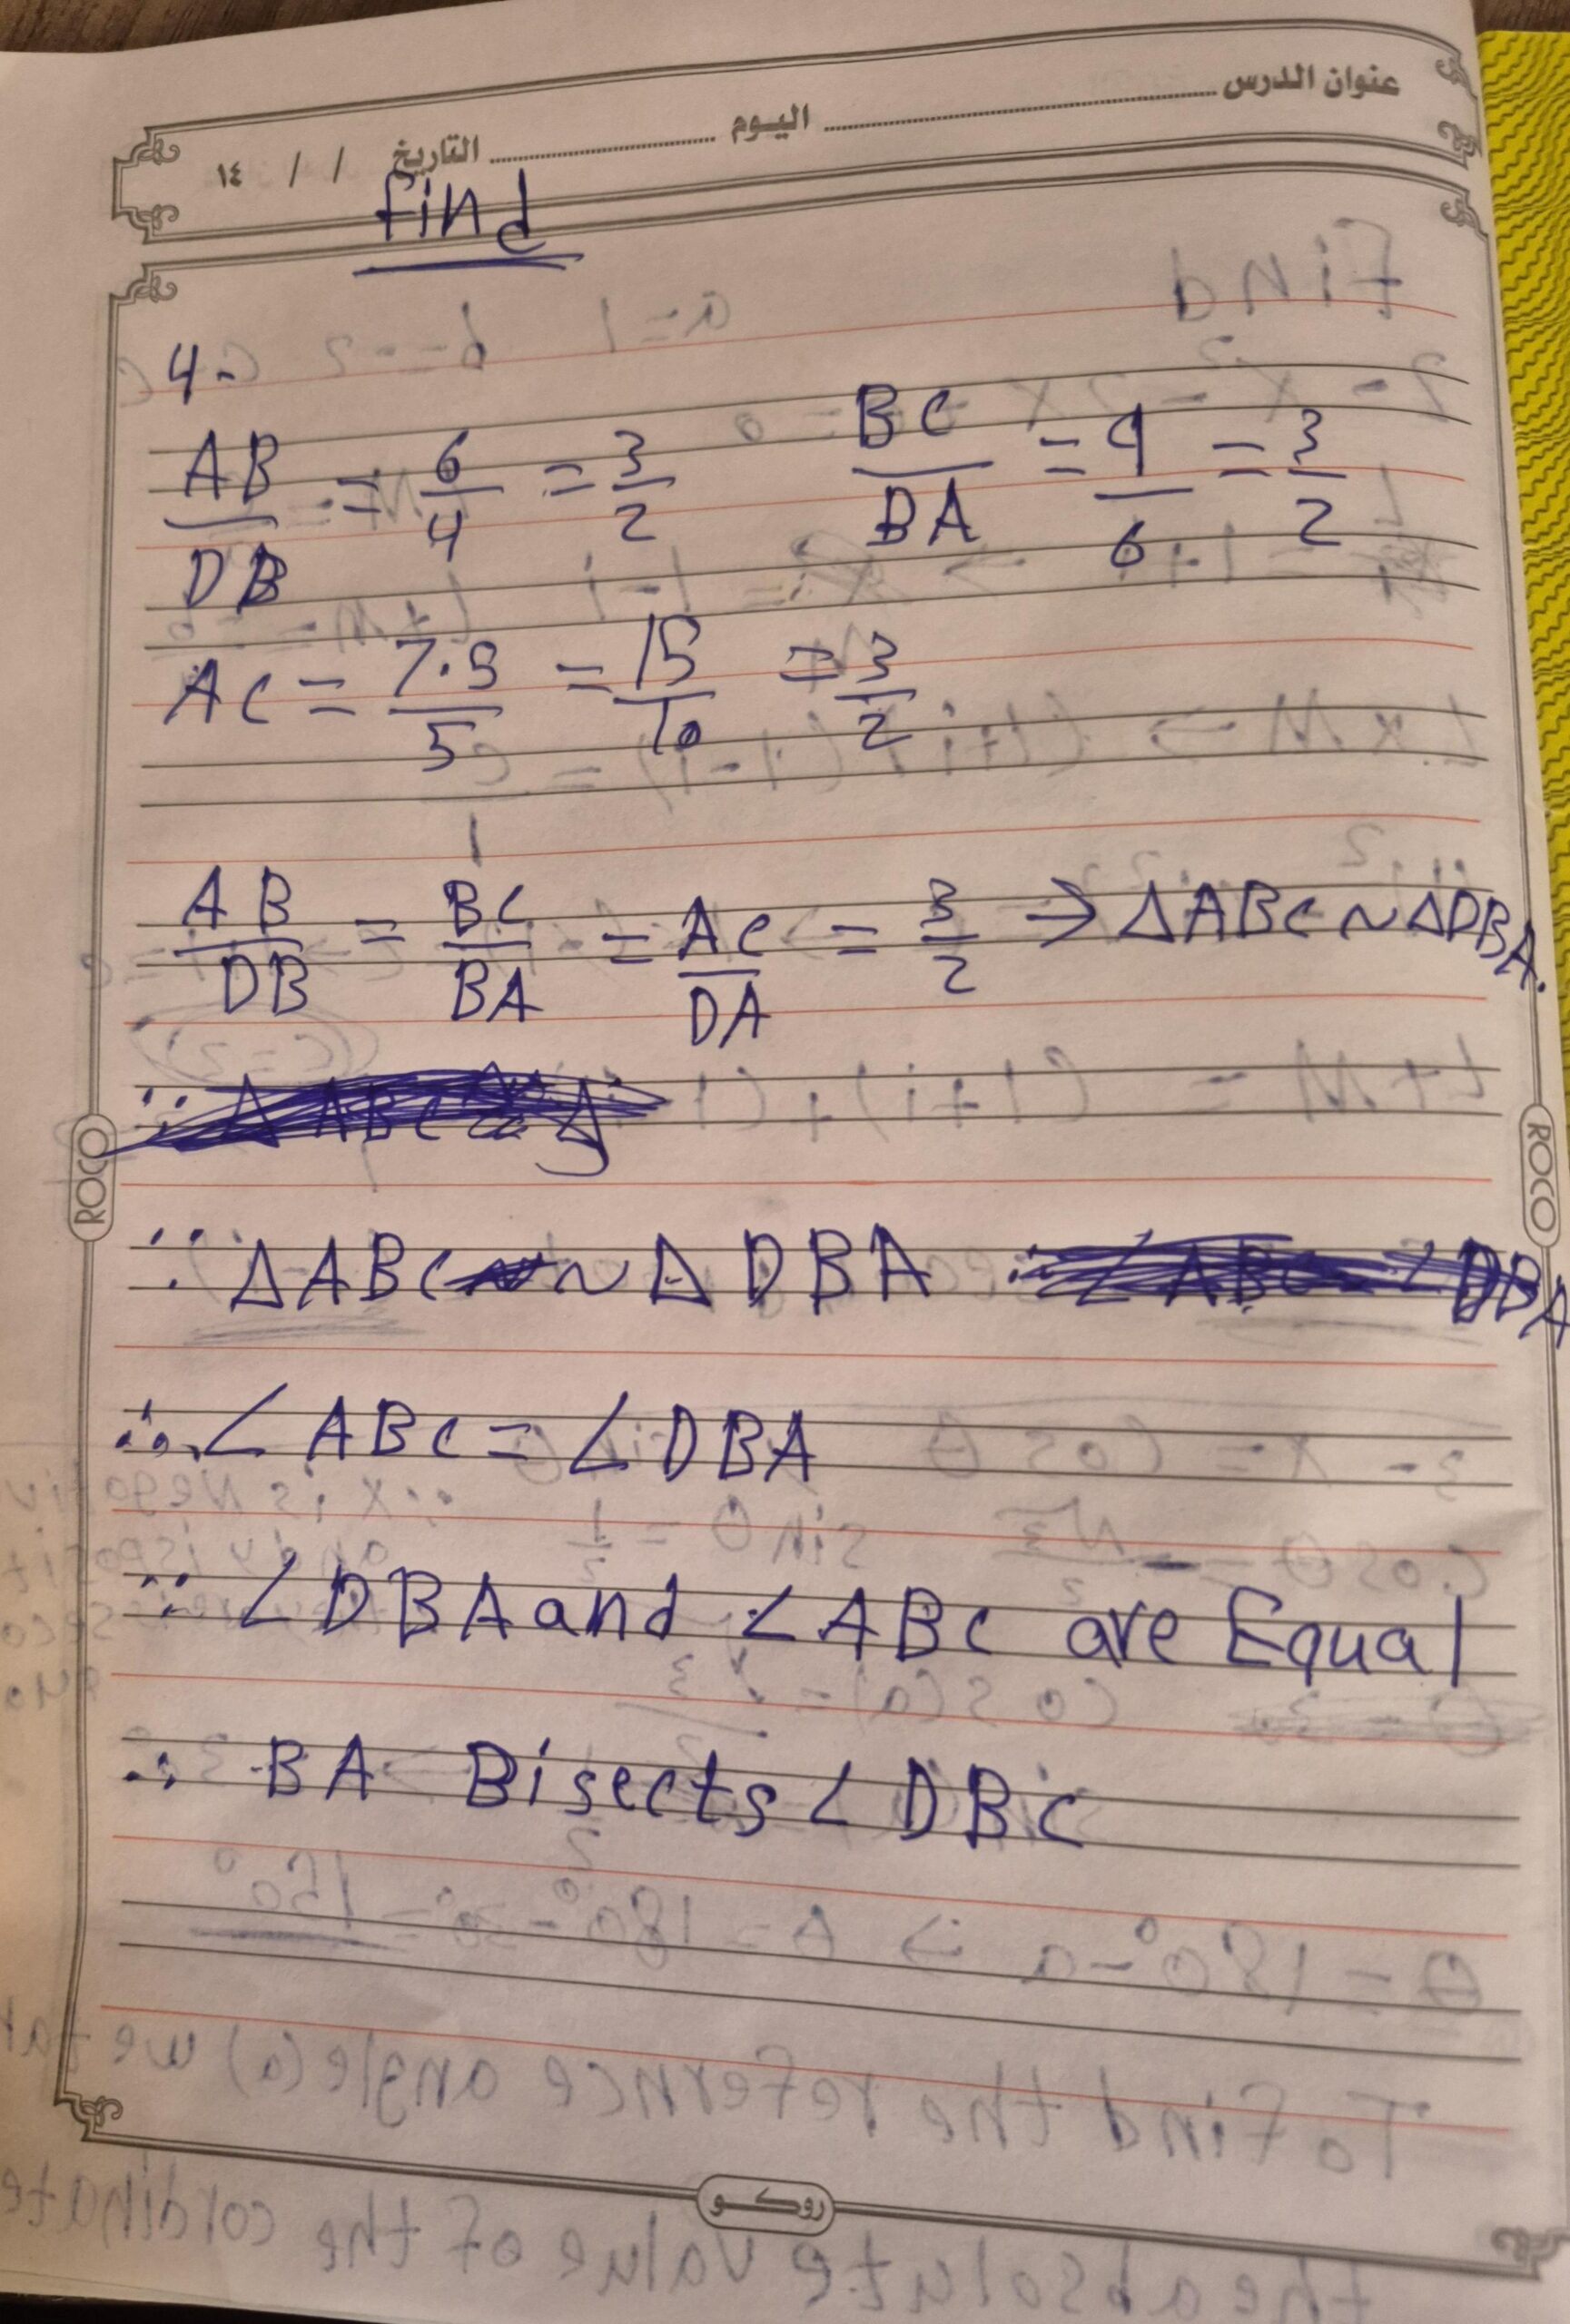 عنوان الدرس ........ اليوم ........ التاريخ / / ١٤
find
4-
AB/DB = 6/4 = 3/2 BC/BA = 9/6 = 3/2
AC = 7.5/5 = 15/10 = 3/2
AB/DB = BC/BA = AC/DA = 3/2 → ΔABC ~ ΔDBA.
∵ ΔABC ~ ΔDBA
∴ ∠ABC = ∠DBA
∵ ∠DBA and ∠ABC are Equal
∴ BA Bisects ∠DBC
ROCO
ROCO
روكو